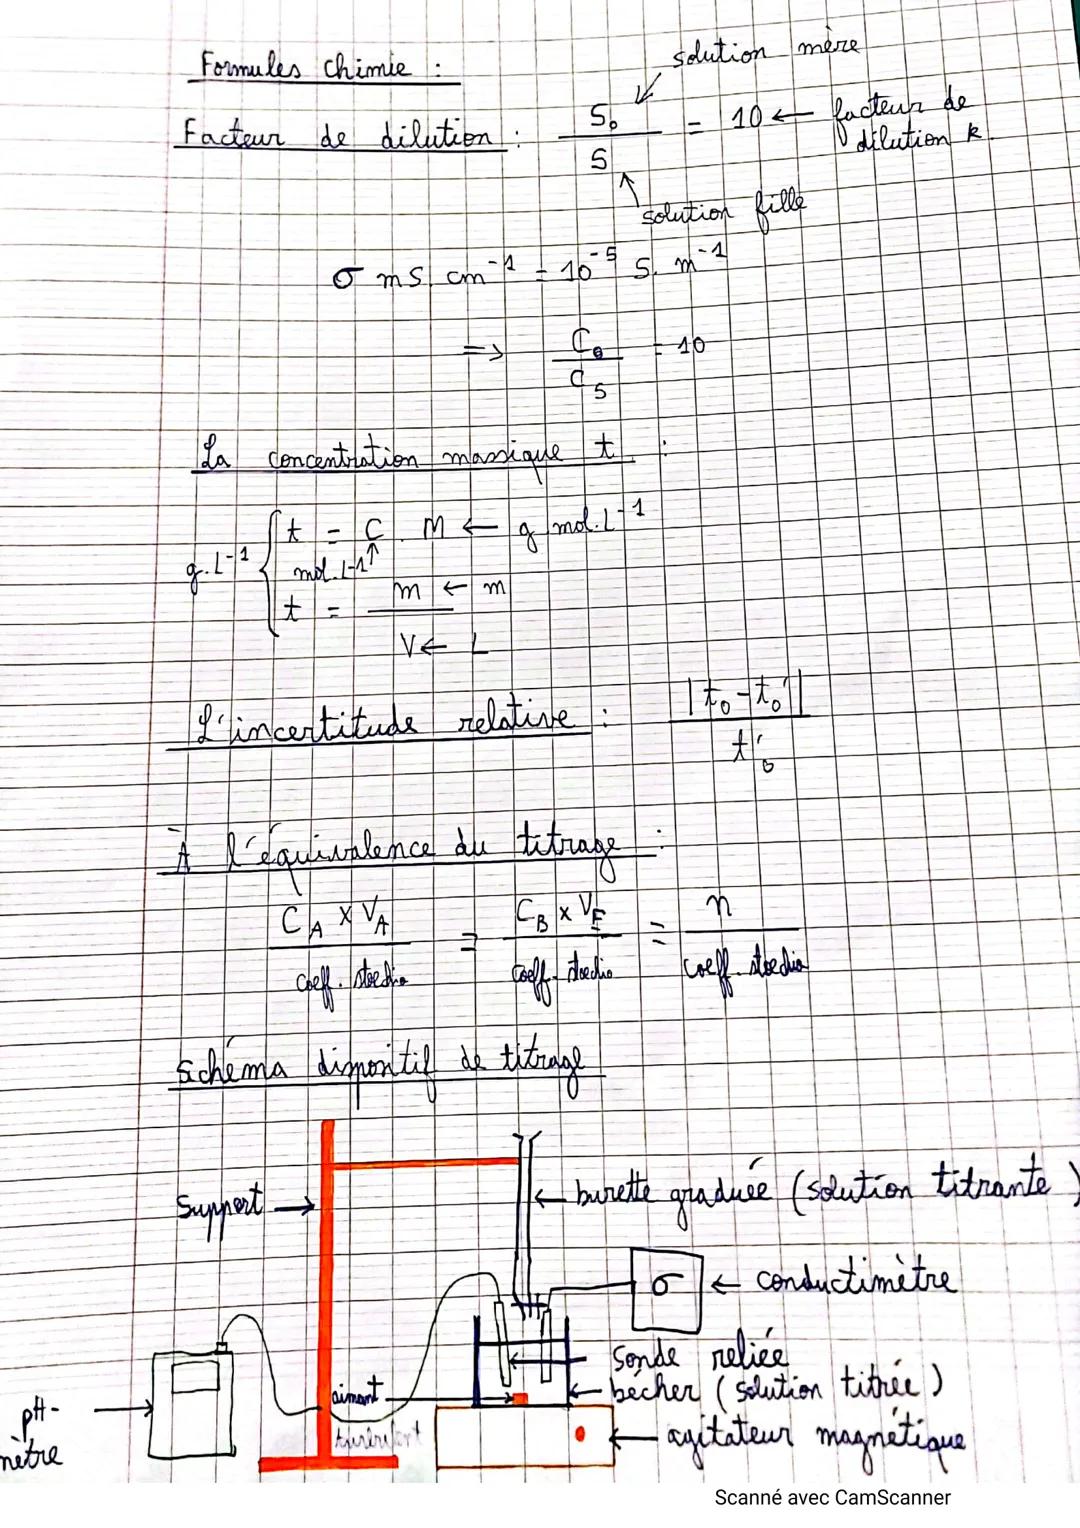 Formules chimie :
solution mère
Facteur de dilution : S₀ / S = 10 ← facteur de dilution k
solution fille
σ mS. cm⁻¹ = 10⁻⁵ S. m⁻¹
=> C₀ / Cs = 10
La concentration massique t :
g.L⁻¹ { t = C . M ← g mol.L⁻¹
mol.L⁻¹ ↑
t = m ← m
V ← L
L'incertitude relative : |t₀ - t₀'| / t'₀
À l'équivalence du titrage :
C_A x V_A / coeff. stoechio = C_B x V_E / coeff. stoechio = n / coeff. stoechio
Schéma dispositif de titrage
Support →
← burette graduée (solution titrante)
σ ← conductimètre
sonde reliée
aimant
← bécher (solution titrée)
pH-
mètre
← agitateur magnétique
Scanné avec CamScanner